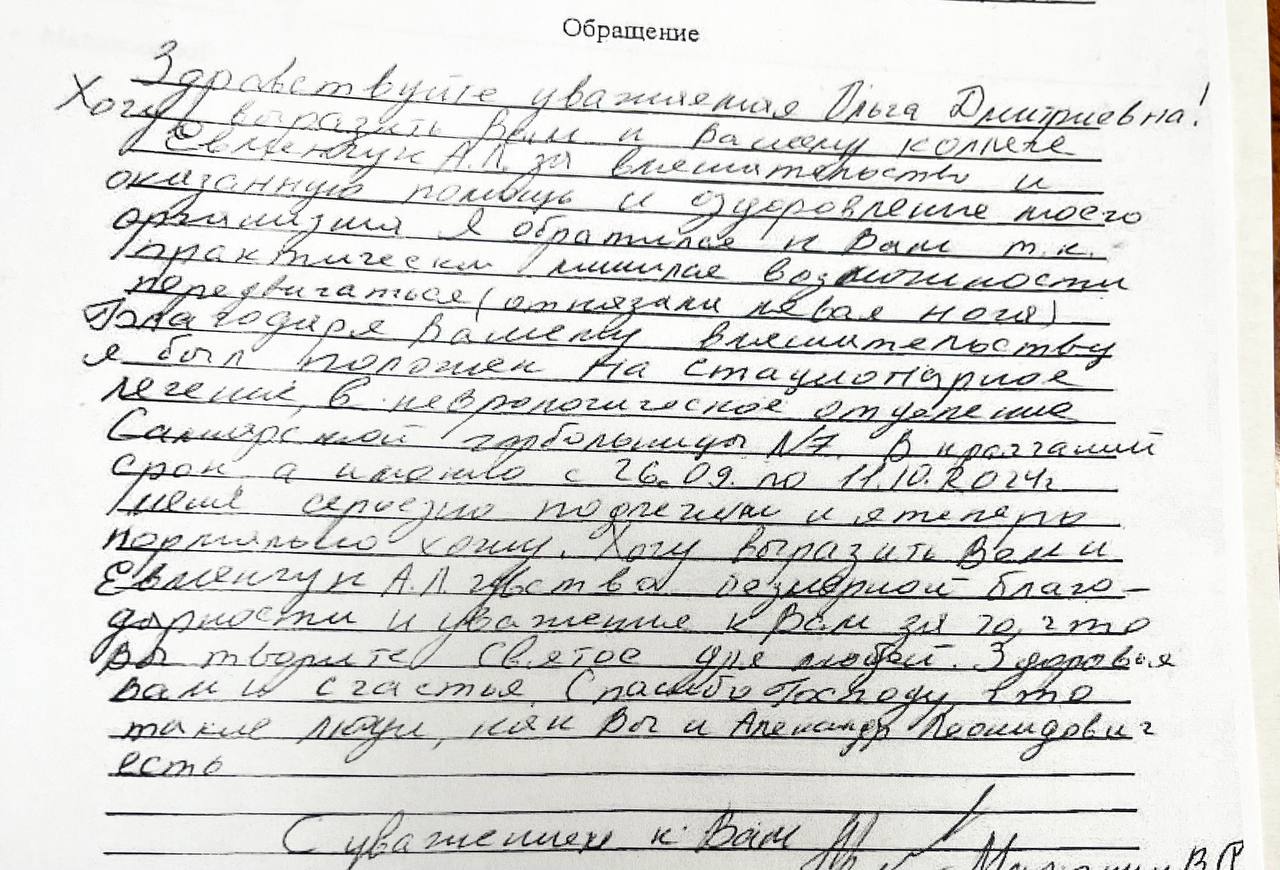 Обращение
Здравствуйте уважаемая Ольга Дмитриевна!
Хочу выразить Вам и вашему коллеге
Евменчук А.Л. за вмешательство и
оказанную помощь и оздоровление моего
организма Я обратился к Вам т.к.
практически лишился возможности
передвигаться (отказала левая нога)
Благодаря Вашему вмешательству
я был положен на стационарное
лечение в неврологическое отделение
Самарской горбольницы №7. В кратчайший
срок а именно с 26.09. по 11.10.2024г
меня серьезно подлечили и я теперь
нормально хожу. Хочу выразить Вам и
Евменчук А.Л. чувства безмерной благо-
дарности и уважения к Вам за то, что
Вы творите святое для людей. Здоровья
вам и счастья Спасибо Господу что
такие люди, как Вы и Александр Леонидович
есть
С уважением к Вам